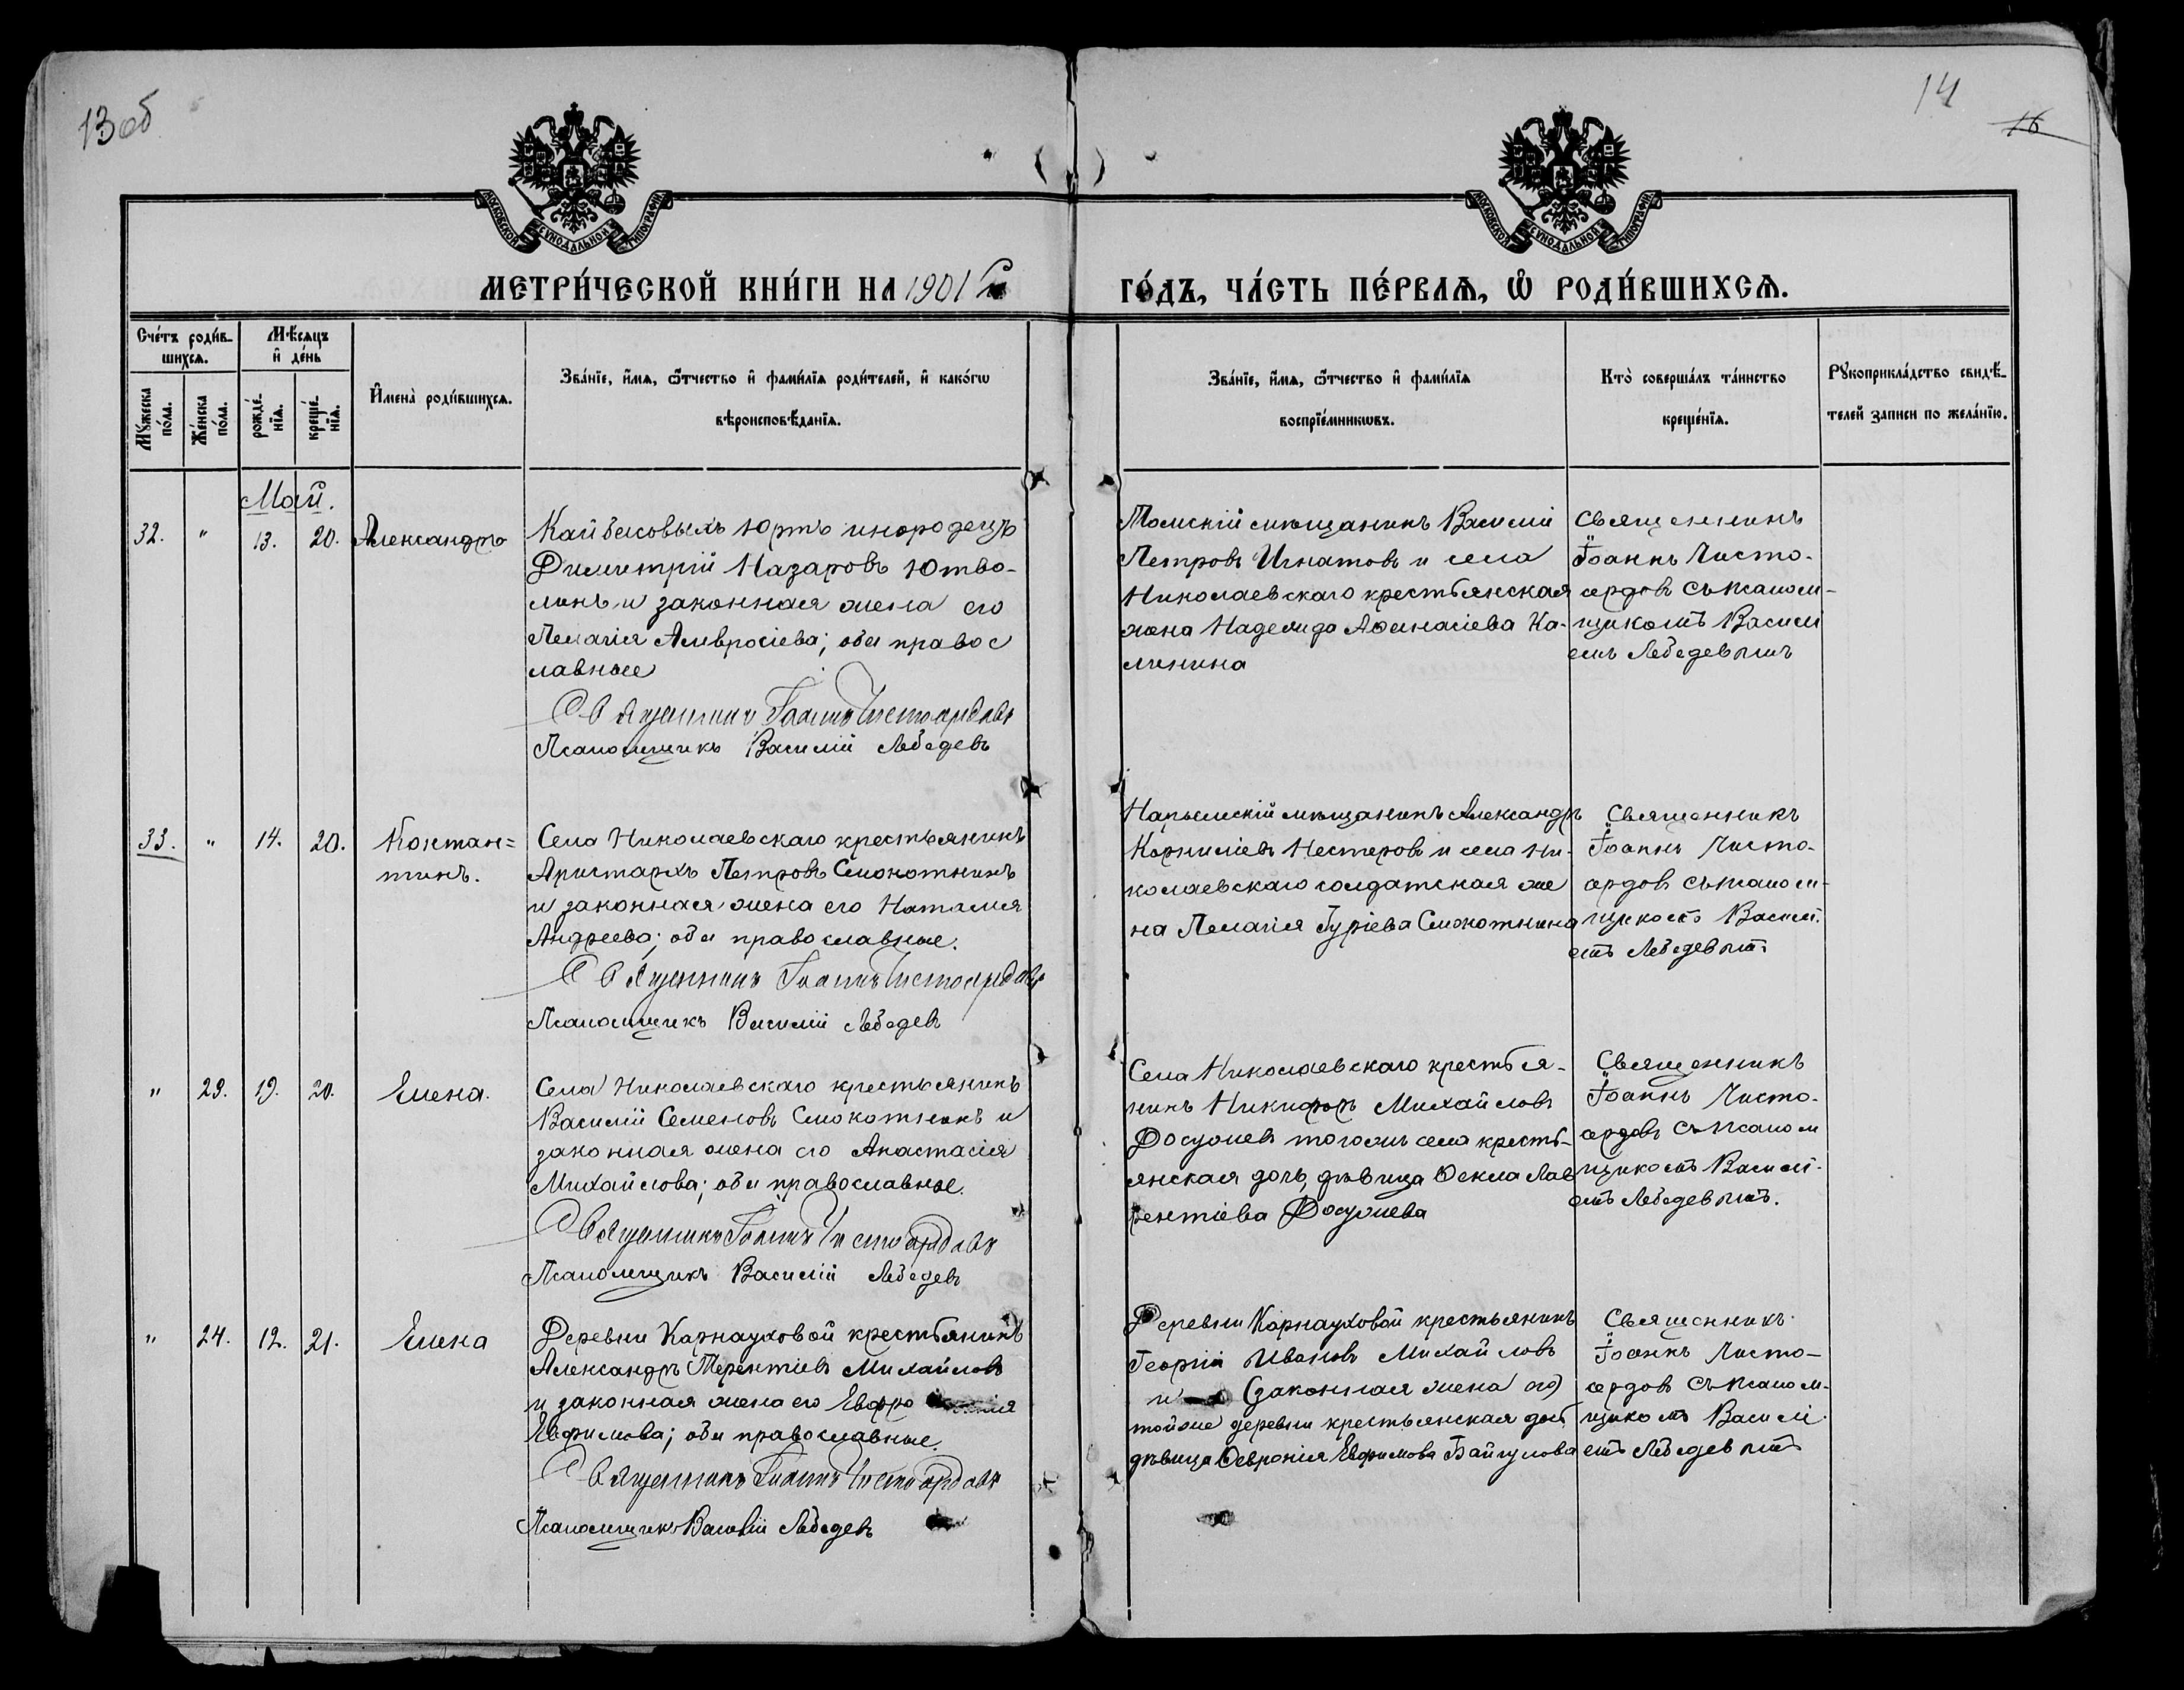 13 об
14
16
МОСКОВСКОЙ СѴНОДАЛЬНОЙ ТИПОГРАФІИ
МОСКОВСКОЙ СѴНОДАЛЬНОЙ ТИПОГРАФІИ
МЕТРИ́ЧЕСКОЙ КНИ́ГИ НА 1901
ГО́ДЪ, ЧА́СТЬ ПЕ́РВАѦ, Ѽ РОДИ́ВШИХСѦ.
Сче́тъ роди́в-
шихсѧ.
Мѣ́сѧцъ
и҆ де́нь
Мꙋ́жеска
по́ла.
Же́нска
по́ла.
рожде́-
нїѧ.
креще́-
нїѧ.
И҆мена̀ роди́вшихсѧ.
Зва́нїе, и҆́мѧ, ѻ҆́тчество и҆ фами́лїѧ роди́телей, и҆ како́гѡ
вѣроисповѣ́данїѧ.
Зва́нїе, и҆́мѧ, ѻ҆́тчество и҆ фами́лїѧ
воспрїе́мникѡвъ.
Кто̀ соверша́лъ та́инство
креще́нїѧ.
Рꙋкоприкла́дство свидѣ́-
телей записи по жела́нїю.
Май.
32. " 13. 20. Александръ
Кайбасовыхъ юртъ инородецъ
Димитрій Назаровъ Ютво-
линъ и законная жена его
Пелагія Амвросіева; оба правос
лавные
Священникъ Іоаннъ Чистосердовъ
Псаломщикъ Василій Лебедевъ
Томскій мѣщанинъ Василій
Петровъ Игнатовъ и села
Николаевскаго крестьянская
жена Надежда Аѳанасіева Ка-
линина
Священникъ
Іоаннъ Чисто-
сердовъ съ псалом-
щикомъ Василі
емъ Лебедевымъ
33. " 14. 20. Констан=
тинъ.
Села Николаевскаго крестьянинъ
Аристархъ Петровъ Смокотнинъ
и законная жена его Наталия
Андреева; оба православные.
Священникъ Іоаннъ Чистосердовъ
Псаломщикъ Василій Лебедевъ
Нарымскій мѣщанинъ Александръ
Корниліевъ Нестеровъ и села Ни-
колаевскаго солдатская же
на Пелагія Гуріева Смокотнина
Священникъ
Іоаннъ Чисто-
сердовъ съ псалом-
щикомъ Василі-
емъ Лебедевымъ
" 23. 19. 20. Елена.
Села Николаевскаго крестьянинъ
Василій Семеновъ Смокотнинъ и
законная жена его Анастасія
Михайлова; оба православные.
Священникъ Іоаннъ Чистосердовъ
Псаломщикъ Василій Лебедевъ
Села Николаевскаго крестья-
нинъ Никифоръ Михайловъ
Досужевъ того жъ села кресть-
янская дочь, дѣвица Ѳекла Лав
рентіева Досужева
Священникъ
Іоаннъ Чисто-
сердовъ съ псалом
щикомъ Василі-
емъ Лебедевымъ.
" 24. 12. 21. Елена
Деревни Карнауховой крестьянинъ
Александръ Терентіевъ Михайловъ
и законная жена его Евфро
Евфимова; оба православные.
Священникъ Іоаннъ Чистосердовъ
Псаломщикъ Василій Лебедевъ
Деревни Карнауховой крестьянинъ
Георгій Ивановъ Михайловъ
и (законная жена его)
той же деревни крестьянская дочь
дѣвица Ѳевронія Евфимова Байгулова
Священникъ
Іоаннъ Чисто-
сердовъ съ псалом-
щикомъ Василі
емъ Лебедевымъ